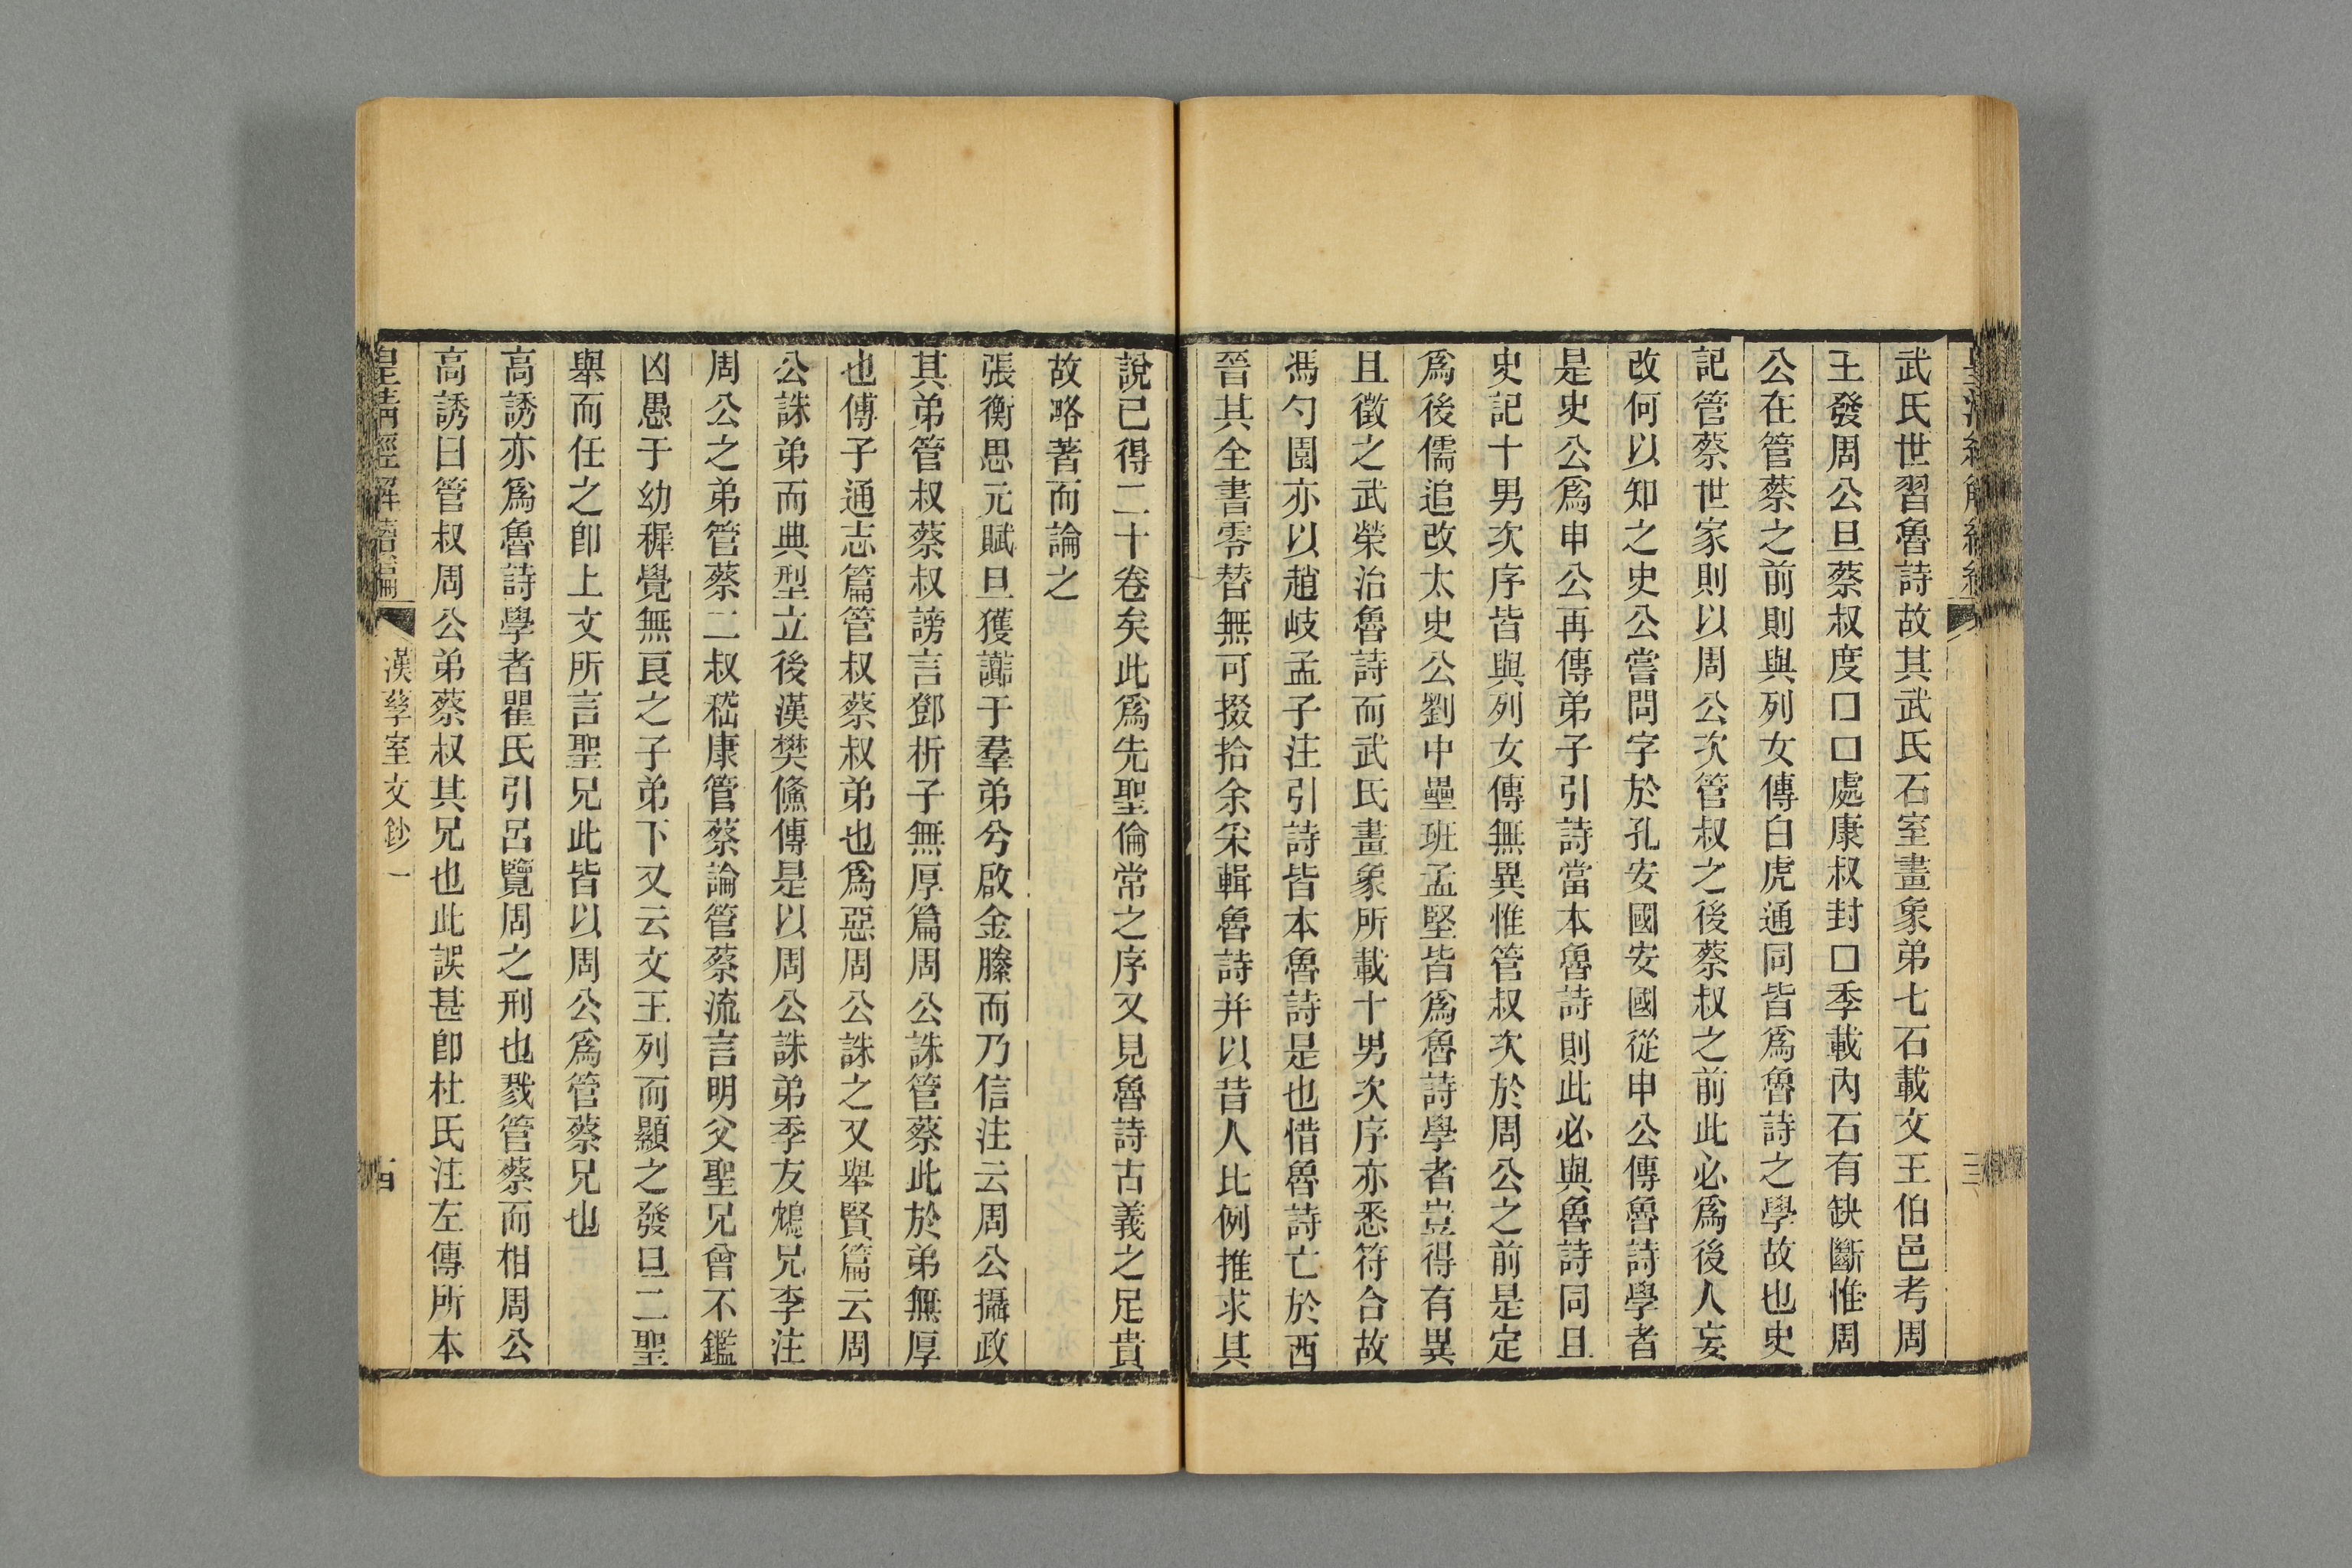 武氏世習魯詩故其武氏石室畫象弟七石載文王伯邑考周
王發周公旦蔡叔度□□處康叔封□季載內石有缺斷惟周
公在管蔡之前則與列女傳白虎通同皆爲魯詩之學故也史
記管蔡世家則以周公次管叔之後蔡叔之前此必爲後人妄
改何以知之史公嘗問字於孔安國安國從申公傳魯詩學者
是史公爲申公再傳弟子引詩當本魯詩則此必與魯詩同且
史記十男次序皆與列女傳無異惟管叔次於周公之前是定
爲後儒追改太史公劉中壘班孟堅皆爲魯詩學者豈得有異
且徵之武榮治魯詩而武氏畫象所載十男次序亦悉符合故
馮勺園亦以趙岐孟子注引詩皆本魯詩是也惜魯詩亡於西
晉其全書零替無可掇拾余宋輯魯詩并以昔人比例推求其
說已得二十卷矣此爲先聖倫常之序又見魯詩古義之足貴
故略著而論之
張衡思元賦旦獲讟于羣弟兮啟金縢而乃信注云周公攝政
其弟管叔蔡叔謗言鄧析子無厚篇周公誅管蔡此於弟無厚
也傅子通志篇管叔蔡叔弟也爲惡周公誅之又舉賢篇云周
公誅弟而典型立後漢樊儵傳是以周公誅弟季友鴆兄李注
周公之弟管蔡二叔嵇康管蔡論管蔡流言明父聖兄曾不鑑
凶愚于幼穉覺無良之子弟下又云文王列而顯之發旦二聖
舉而任之卽上文所言聖兄此皆以周公爲管蔡兄也
高誘亦爲魯詩學者瞿氏引呂覽周之刑也戮管蔡而相周公
高誘曰管叔周公弟蔡叔其兄也此誤甚卽杜氏注左傳所本
皇淸經解續編
漢孳室文鈔一